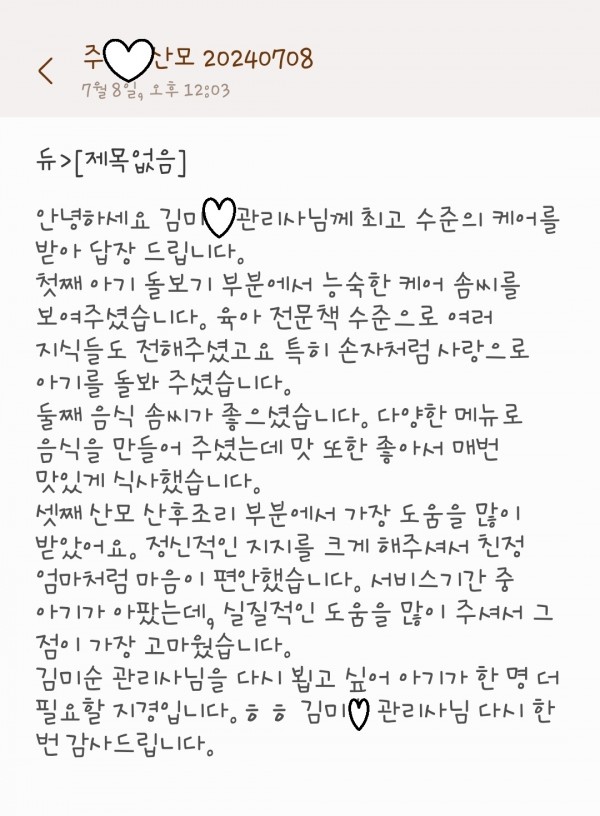 주 산모 20240708
7월 8일, 오후 12:03
듀>[제목없음]
안녕하세요 김미 관리사님께 최고 수준의 케어를
받아 답장 드립니다.
첫째 아기 돌보기 부분에서 능숙한 케어 솜씨를
보여주셨습니다. 육아 전문책 수준으로 여러
지식들도 전해주셨고요 특히 손자처럼 사랑으로
아기를 돌봐 주셨습니다.
둘째 음식 솜씨가 좋으셨습니다. 다양한 메뉴로
음식을 만들어 주셨는데 맛 또한 좋아서 매번
맛있게 식사했습니다.
셋째 산모 산후조리 부분에서 가장 도움을 많이
받았어요. 정신적인 지지를 크게 해주셔서 친정
엄마처럼 마음이 편안했습니다. 서비스기간 중
아기가 아팠는데, 실질적인 도움을 많이 주셔서 그
점이 가장 고마웠습니다.
김미순 관리사님을 다시 뵙고 싶어 아기가 한 명 더
필요할 지경입니다.ㅎㅎ 김미 관리사님 다시 한
번 감사드립니다.